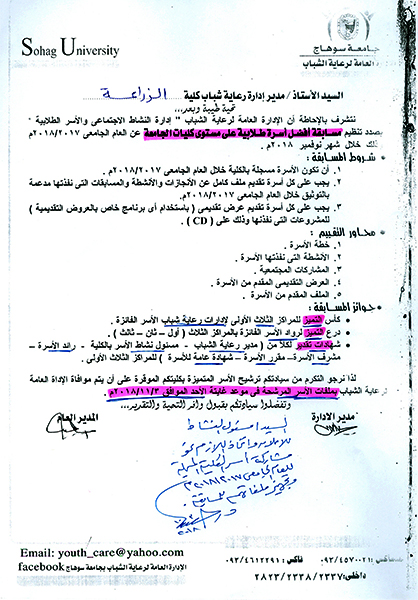 Sohag University
جامعة سوهاج
الإدارة العامة لرعاية الشباب
السيد الأستاذ / مدير إدارة رعاية شباب كلية الزراعة
تحية طيبة وبعد...
نتشرف بالإحاطة أن الإدارة العامة لرعاية الشباب " إدارة النشاط الاجتماعى والأسر الطلابية "
بصدد تنظيم مسابقة أفضل أسرة طلابية على مستوى كليات الجامعة عن العام الجامعى ٢٠١٨/٢٠١٧م
ذلك خلال شهر نوفمبر ٢٠١٨م .
شروط المسابقة :
١. أن تكون الأسرة مسجلة بالكلية خلال العام الجامعى ٢٠١٨/٢٠١٧م .
٢. يجب على كل أسرة تقديم ملف كامل عن الأنجازات والأنشطة والمسابقات التى نفذتها مدعمة
بالتوثيق خلال العام الجامعى ٢٠١٨/٢٠١٧م .
٣. يجب على كل أسرة تقديم عرض تقديمى ( باستخدام أى برنامج خاص بالعروض التقديمية )
للمشروعات التى نفذتها وذلك على ( CD ) .
محاور التقييم :
١. خطة الأسرة .
٢. الأنشطة التى نفذتها الأسرة .
٣. المشاركات المجتمعية .
٤. العرض التقديمى المقدم من الأسرة .
٥. الملف المقدم من الأسرة .
جوائز المسابقة :
كأس التميز للمراكز الثلاث الأولى لإدارات رعاية شباب الأسر الفائزة .
درع التميز لرواد الأسر الفائزة بالمراكز الثلاث ( أول – ثان – ثالث ) .
شهادات تقدير لكلاً من ( مدير رعاية الشباب – مسئول نشاط الأسر بالكلية – رائد الأسرة –
مشرف الأسرة – مقرر الأسرة – شهادة عامة للأسرة ) للمراكز الثلاث الأولى .
لذا نرجو التكرم من سيادتكم ترشيح الأسر المتميزة بكليتكم الموقرة على أن يتم موافاة الإداة العامة
لرعاية الشباب بملفات الأسر المرشحة فى موعد غايتة الأحد الموافق ٢٠١٨/١١/٣م
وتفضلوا سيادتكم بقبول وافر التحية والتقدير...
مدير الادارة المدير العام
السيد / مسئول النشاط
واتخاذ اللازم نحو
مشاركة أسر الكلية
للعام الجامعى ٢٠١٨/٢٠١٧م
وتجهيز ملفاتهم للمسابقة
Email: youth_care@yahoo.com
الإدارة العامة لرعاية الشباب بجامعة سوهاج facebook
فاكس : ٠٩٣/٤٦١٢٢٩١ ٠٩٣/٤٥٧٠٠٢١
داخلى: ٢٣٣٧/٢٣٣٨/٢٨٢٣